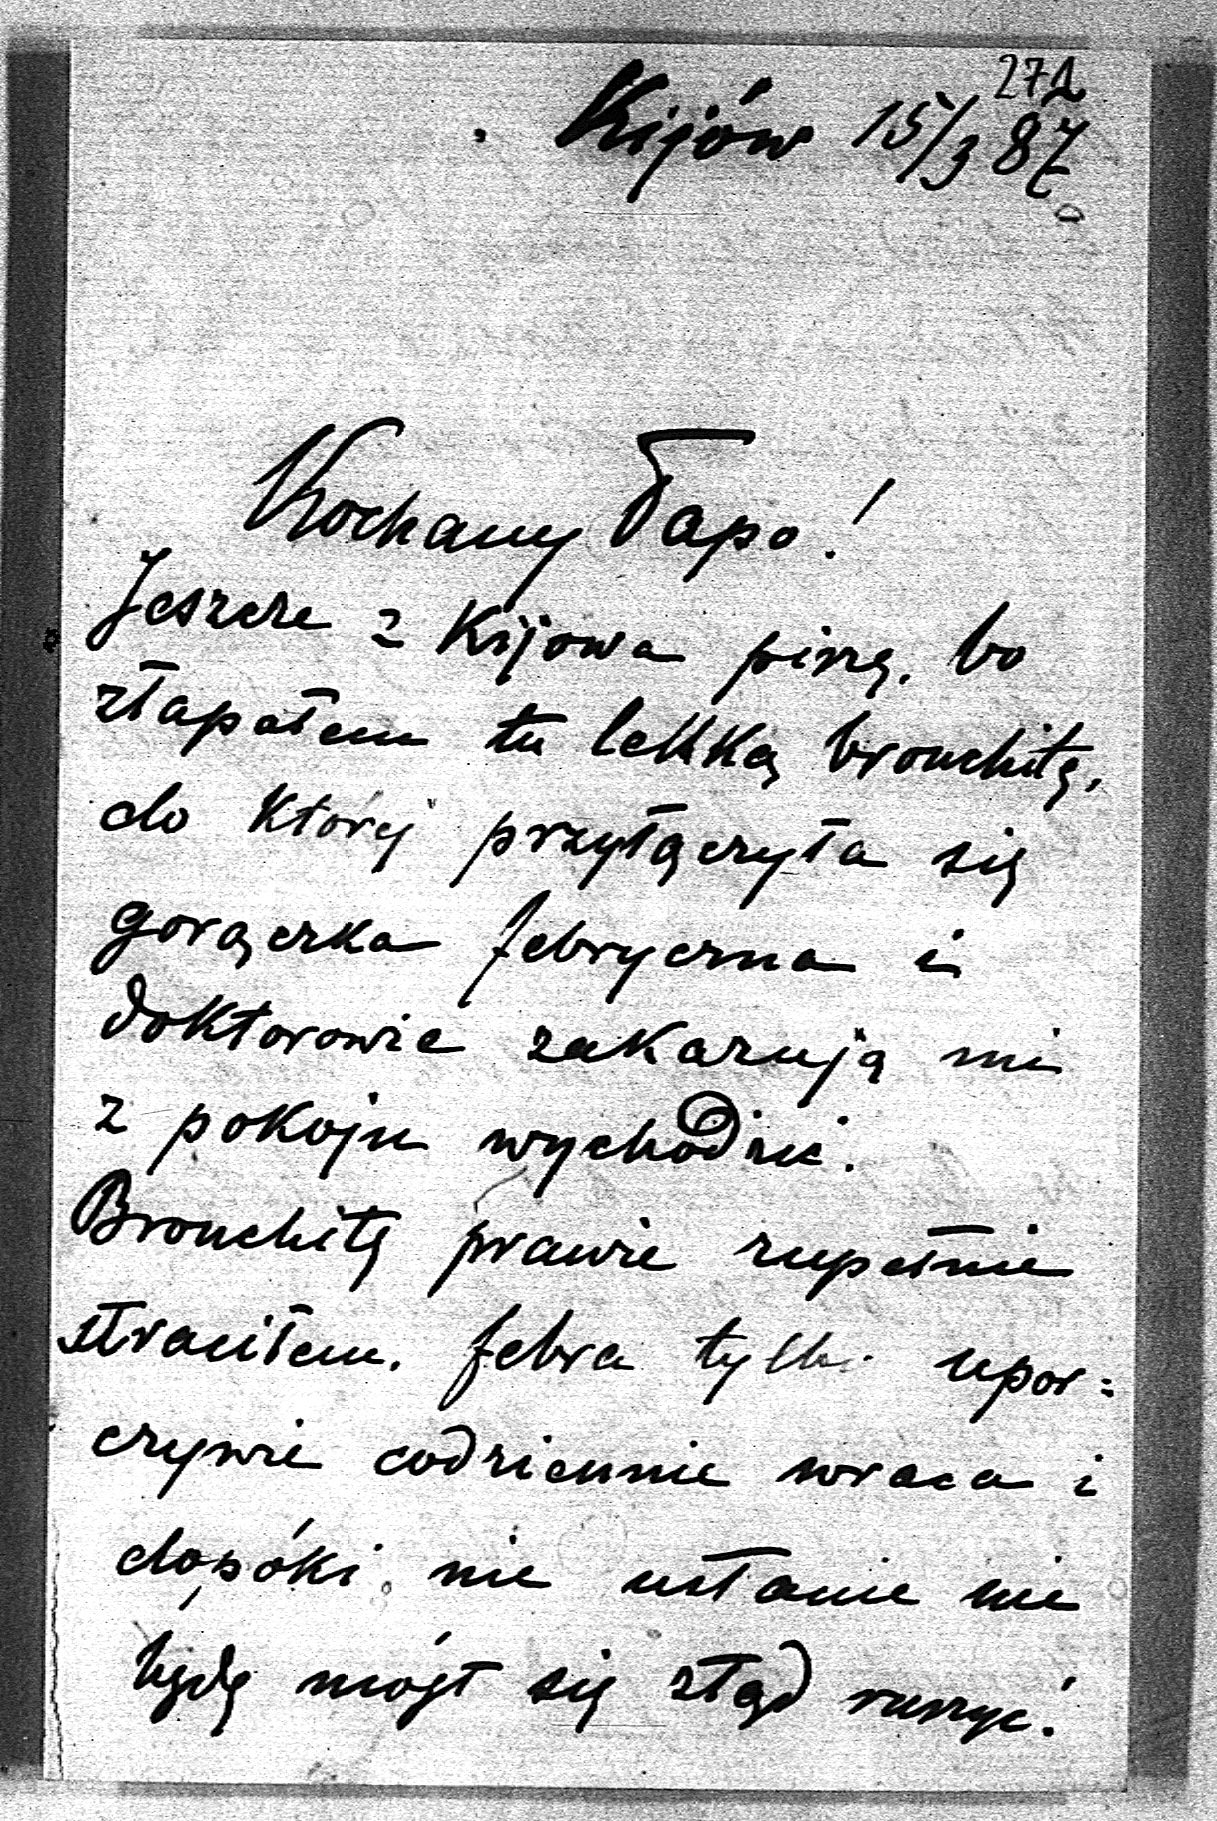 271
Kijów 15/3 87.
Kochany Papo!
Jeszcze z Kijowa piszę, bo
złapałem tu lekką bronchitę,
do której przyłączyła się
gorączka febryczna i
doktorowie zakazują mi
z pokoju wychodzić.
Bronchitę prawie zupełnie
straciłem. febra tylko upor=
czywie codziennie wraca i
dopóki nie ustanie nie
będę mógł się ztąd ruszyć.